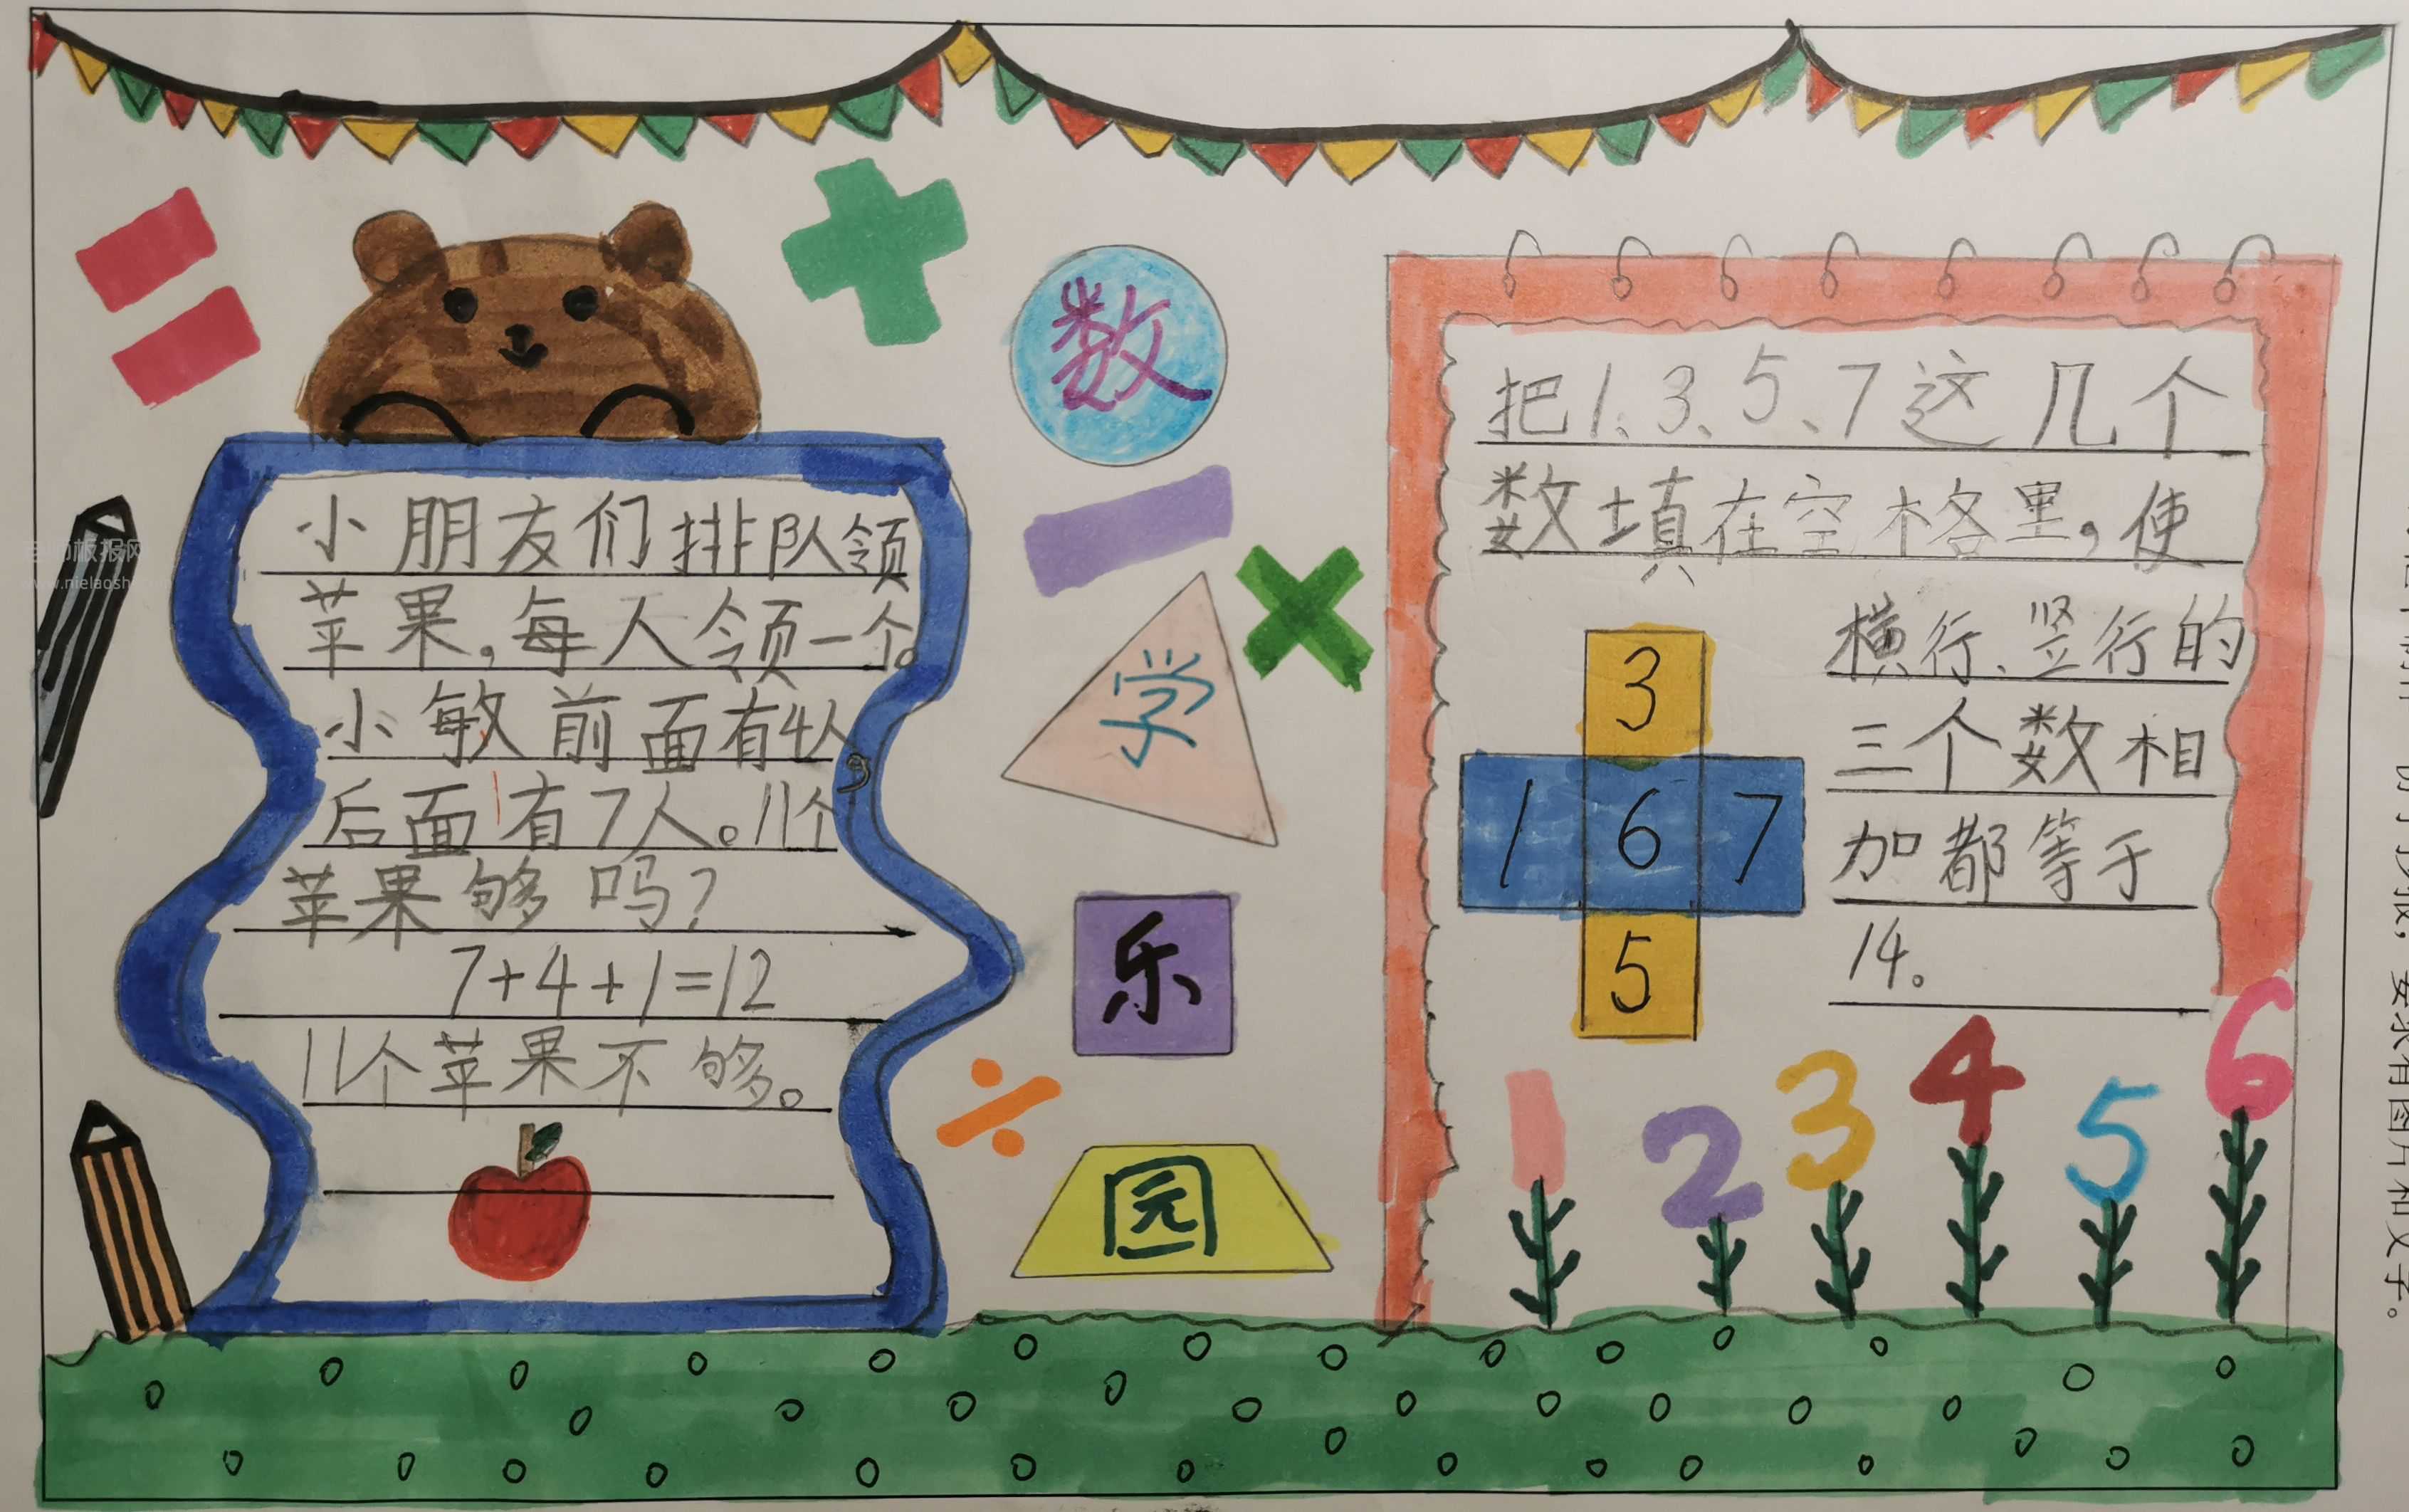 小朋友们排队领
苹果,每人领一个。
小敏前面有4人,
后面有7人。11个
苹果够吗?
7+4+1=12
11个苹果不够。
数
学
乐
园
把1、3、5、7这几个
数填在空格里,使
横行、竖行的
三个数相
加都等于
14。
3
1 6 7
5
1 2 3 4 5 6
要求有图片和文字。